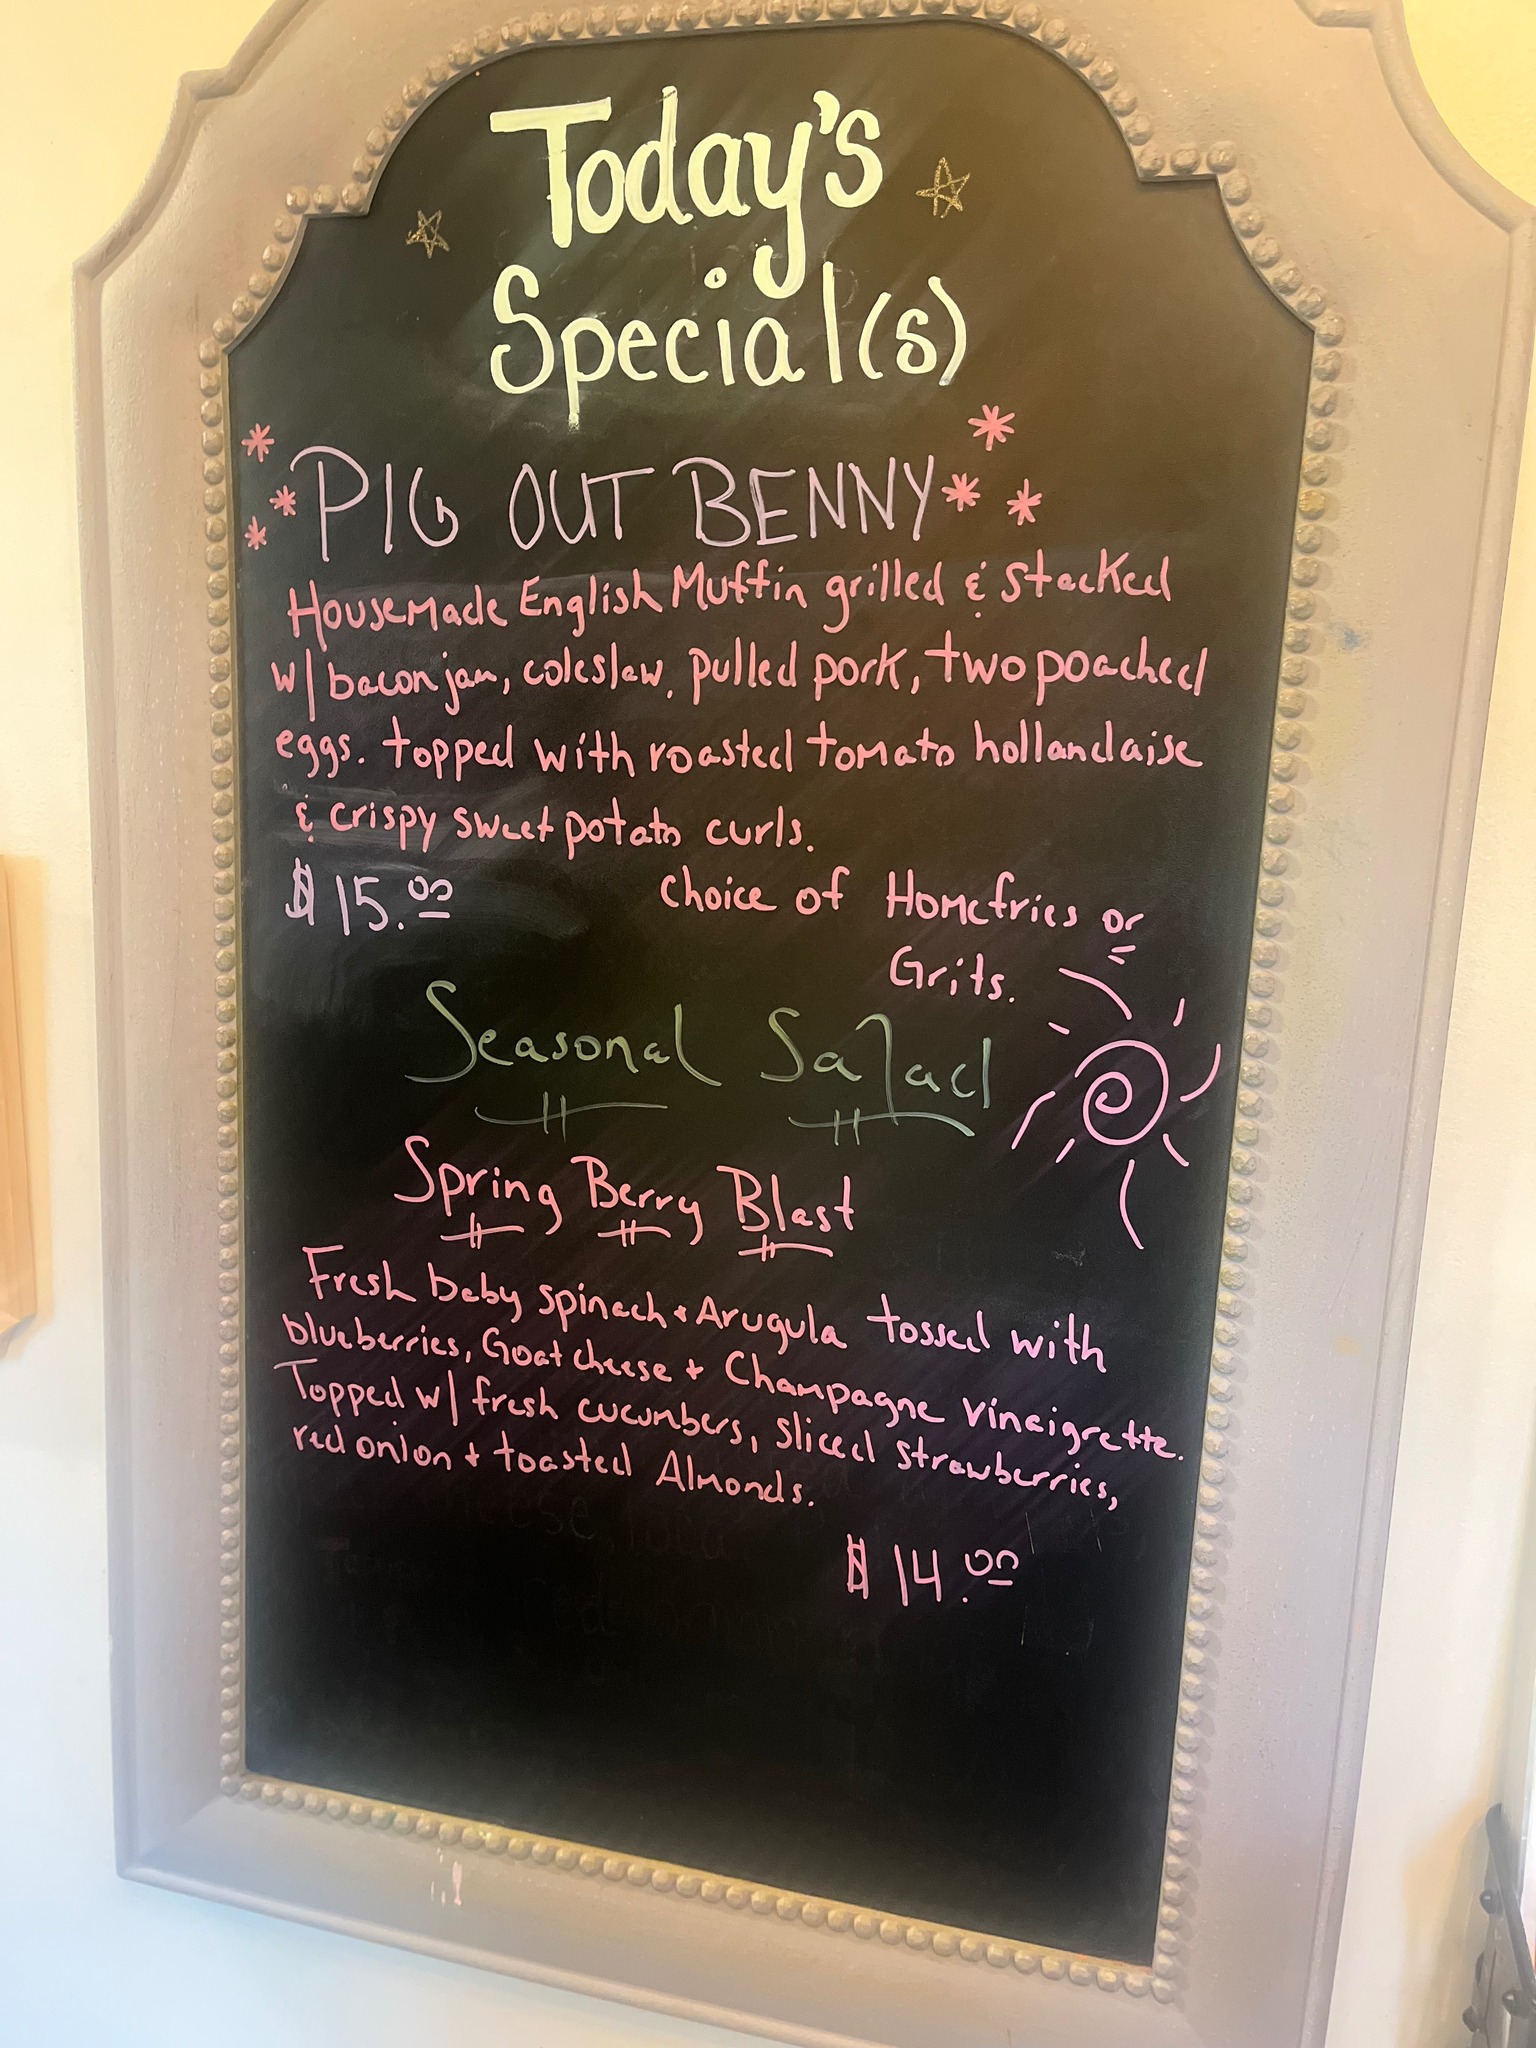 Today's
Special(s)
PIG OUT BENNY
Housemade English Muffin grilled & stacked
w/ bacon jam, coleslaw, pulled pork, two poached
eggs. topped with roasted tomato hollandaise
& crispy sweet potato curls.
$15.00
choice of Homefries or
Grits.
Seasonal Salad
Spring Berry Blast
Fresh baby spinach + Arugula tossed with
blueberries, Goat cheese + Champagne vinaigrette.
Topped w/ fresh cucumbers, sliced strawberries,
red onion + toasted Almonds.
$14.00